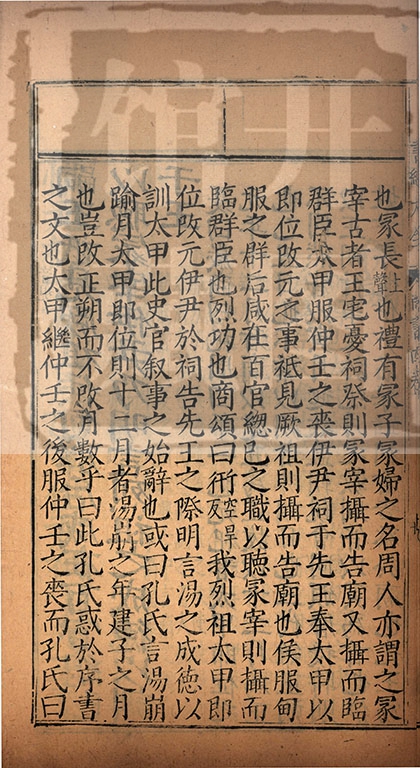 也冢長上聲也禮有冢子冢婦之名周人亦謂之冢
宰古者王宅憂祠祭則冢宰攝而告廟又攝而臨
群臣太甲服仲壬之喪伊尹祠于先王奉太甲以
即位改元之事祗見厥祖則攝而告廟也侯服甸
服之群后咸在百官總己之職以聽冢宰則攝而
臨群臣也烈功也商頌曰衎空旱反我烈祖太甲即
位改元伊尹於祠告先王之際明言湯之成德以
訓太甲此史官叙事之始辭也或曰孔氏言湯崩
踰月太甲即位則十二月者湯崩之年建子之月
也豈改正朔而不改月數乎曰此孔氏惑於序書
之文也太甲繼仲壬之後服仲壬之喪而孔氏曰